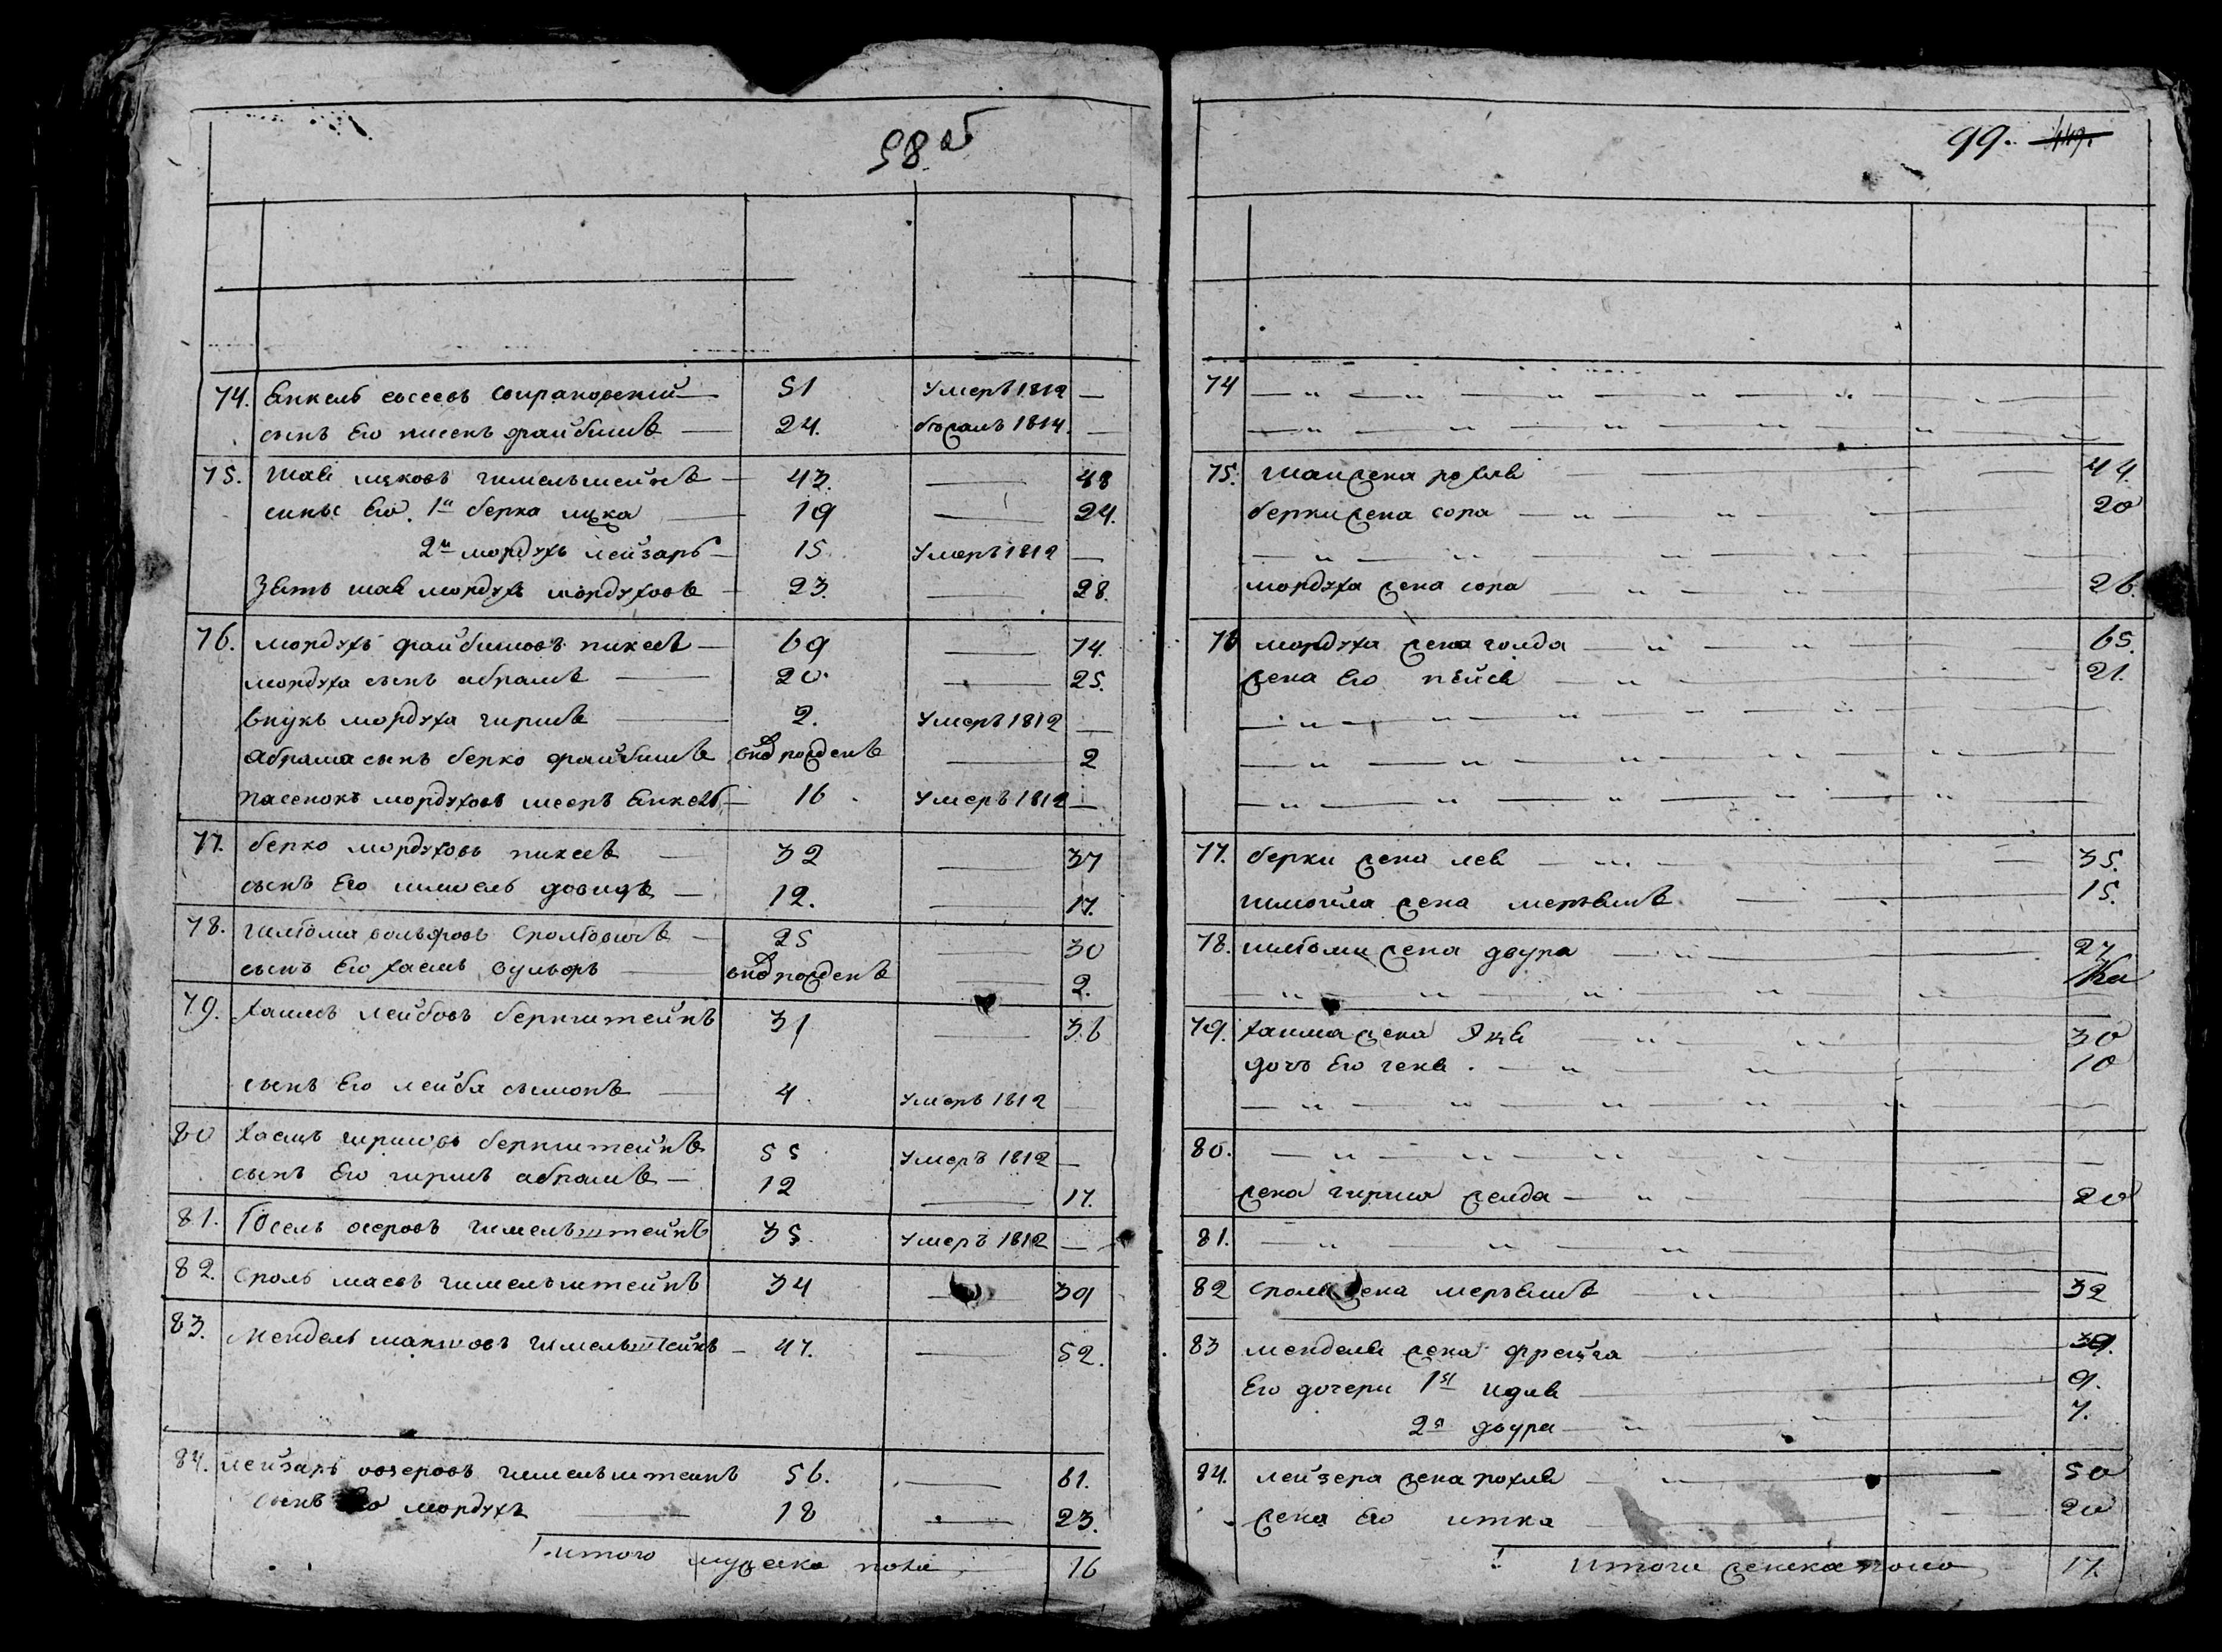 98 об
74. Енкель евсеевъ 51 умеръ 1812 —
сынъ Его писекъ файбишъ — 24. 1814. —
75. Шае ицковъ гимельштейнъ — 43. — 48
сины Его. 1й берко ицка — 19 — 24.
2й мордухъ лейзаръ — 15. умеръ 1812 —
Зеть шае мордухъ мордуховъ — 23. — 28.
76. мордухъ файбишовъ пикеле — 69 — 74.
мордуха сынъ абрамъ — 20. — 25.
внукъ мордуха гиршъ — 2. умеръ 1812 —
абрама сынъ берко файбишъ вновь рожденъ — 2
пасенокъ мордуховъ мееръ Енкель — 16. умеръ 1812 —
77. берко мордуховъ пикеле — 32 — 37
сынъ Его шмоель довидъ — 12. — 17.
78. шлиома вольфовъ — 25 — 30
сынъ Его хаемъ вульфъ — вновь рожденъ — 2.
79. хаимъ лейбовъ бернштейнъ 31 — 36
сынъ Его лейба сымонъ — 4. умеръ 1812 —
80 хаемъ гиршовъ бернштейнъ 55 умеръ 1812 —
сынъ Его гиршъ абрамъ — 12 — 17.
81. Іосель осеровъ гимельштейнъ 35. умеръ 1812 —
82. сроль маевъ гимельштейнъ 34 — 39
83. Мендель гимельштейнъ — 47. — 52.
84. лейзаръ овзеровъ гимельштейнъ 56. — 61.
сынъ Его мордухъ — 18 — 23.
итого мужеска пола 16
99. 
74 — " — " — " — " — " —
— " — " — " — " — " —
75. Шаи жена рохля — 44.
берки жена сора — " — " — 20
— " — " — " — " — " —
мордуха жена сора — " — " — 26.
76 мордуха жена голда — " — " — 65.
жена Его пейсе — " — " — 21.
— " — " — " — " — " —
— " — " — " — " — " —
— " — " — " — " — " —
77. берки жена лея — " — 35.
шмоила жена меръяше — 15.
78. шлиоми жена двура — " — 27
— " — " — " — " — " —
79. хаима жена — " — " — 30
дочъ Его гене. — " — " — 10
— " — " — " — " — " —
80. — " — " — " — " — " —
жена гирша желда — " — 20
81. — " — " — " — " —
82 сроля жена меръяше — " — 32
83 менделя жена фрейга — 39.
Его дочери 1я идле — 9.
2я двура — " — " — 7.
84. лейзера жена рохля — " — 50
жена Его итка — 20
итого женска поло 17.